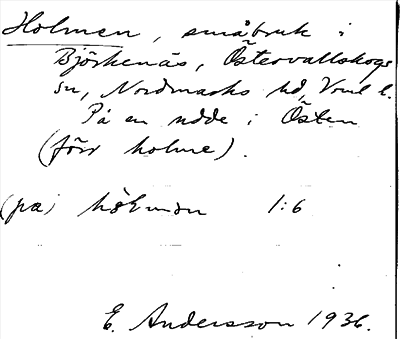 Holmen, småbruk i
Björkenäs, Östervallskogs
sn, Nordmarks hd, Vrml l.
På en udde i Östen
(förr holme).
(på) hòlmən 1:6
E. Andersson 1936.